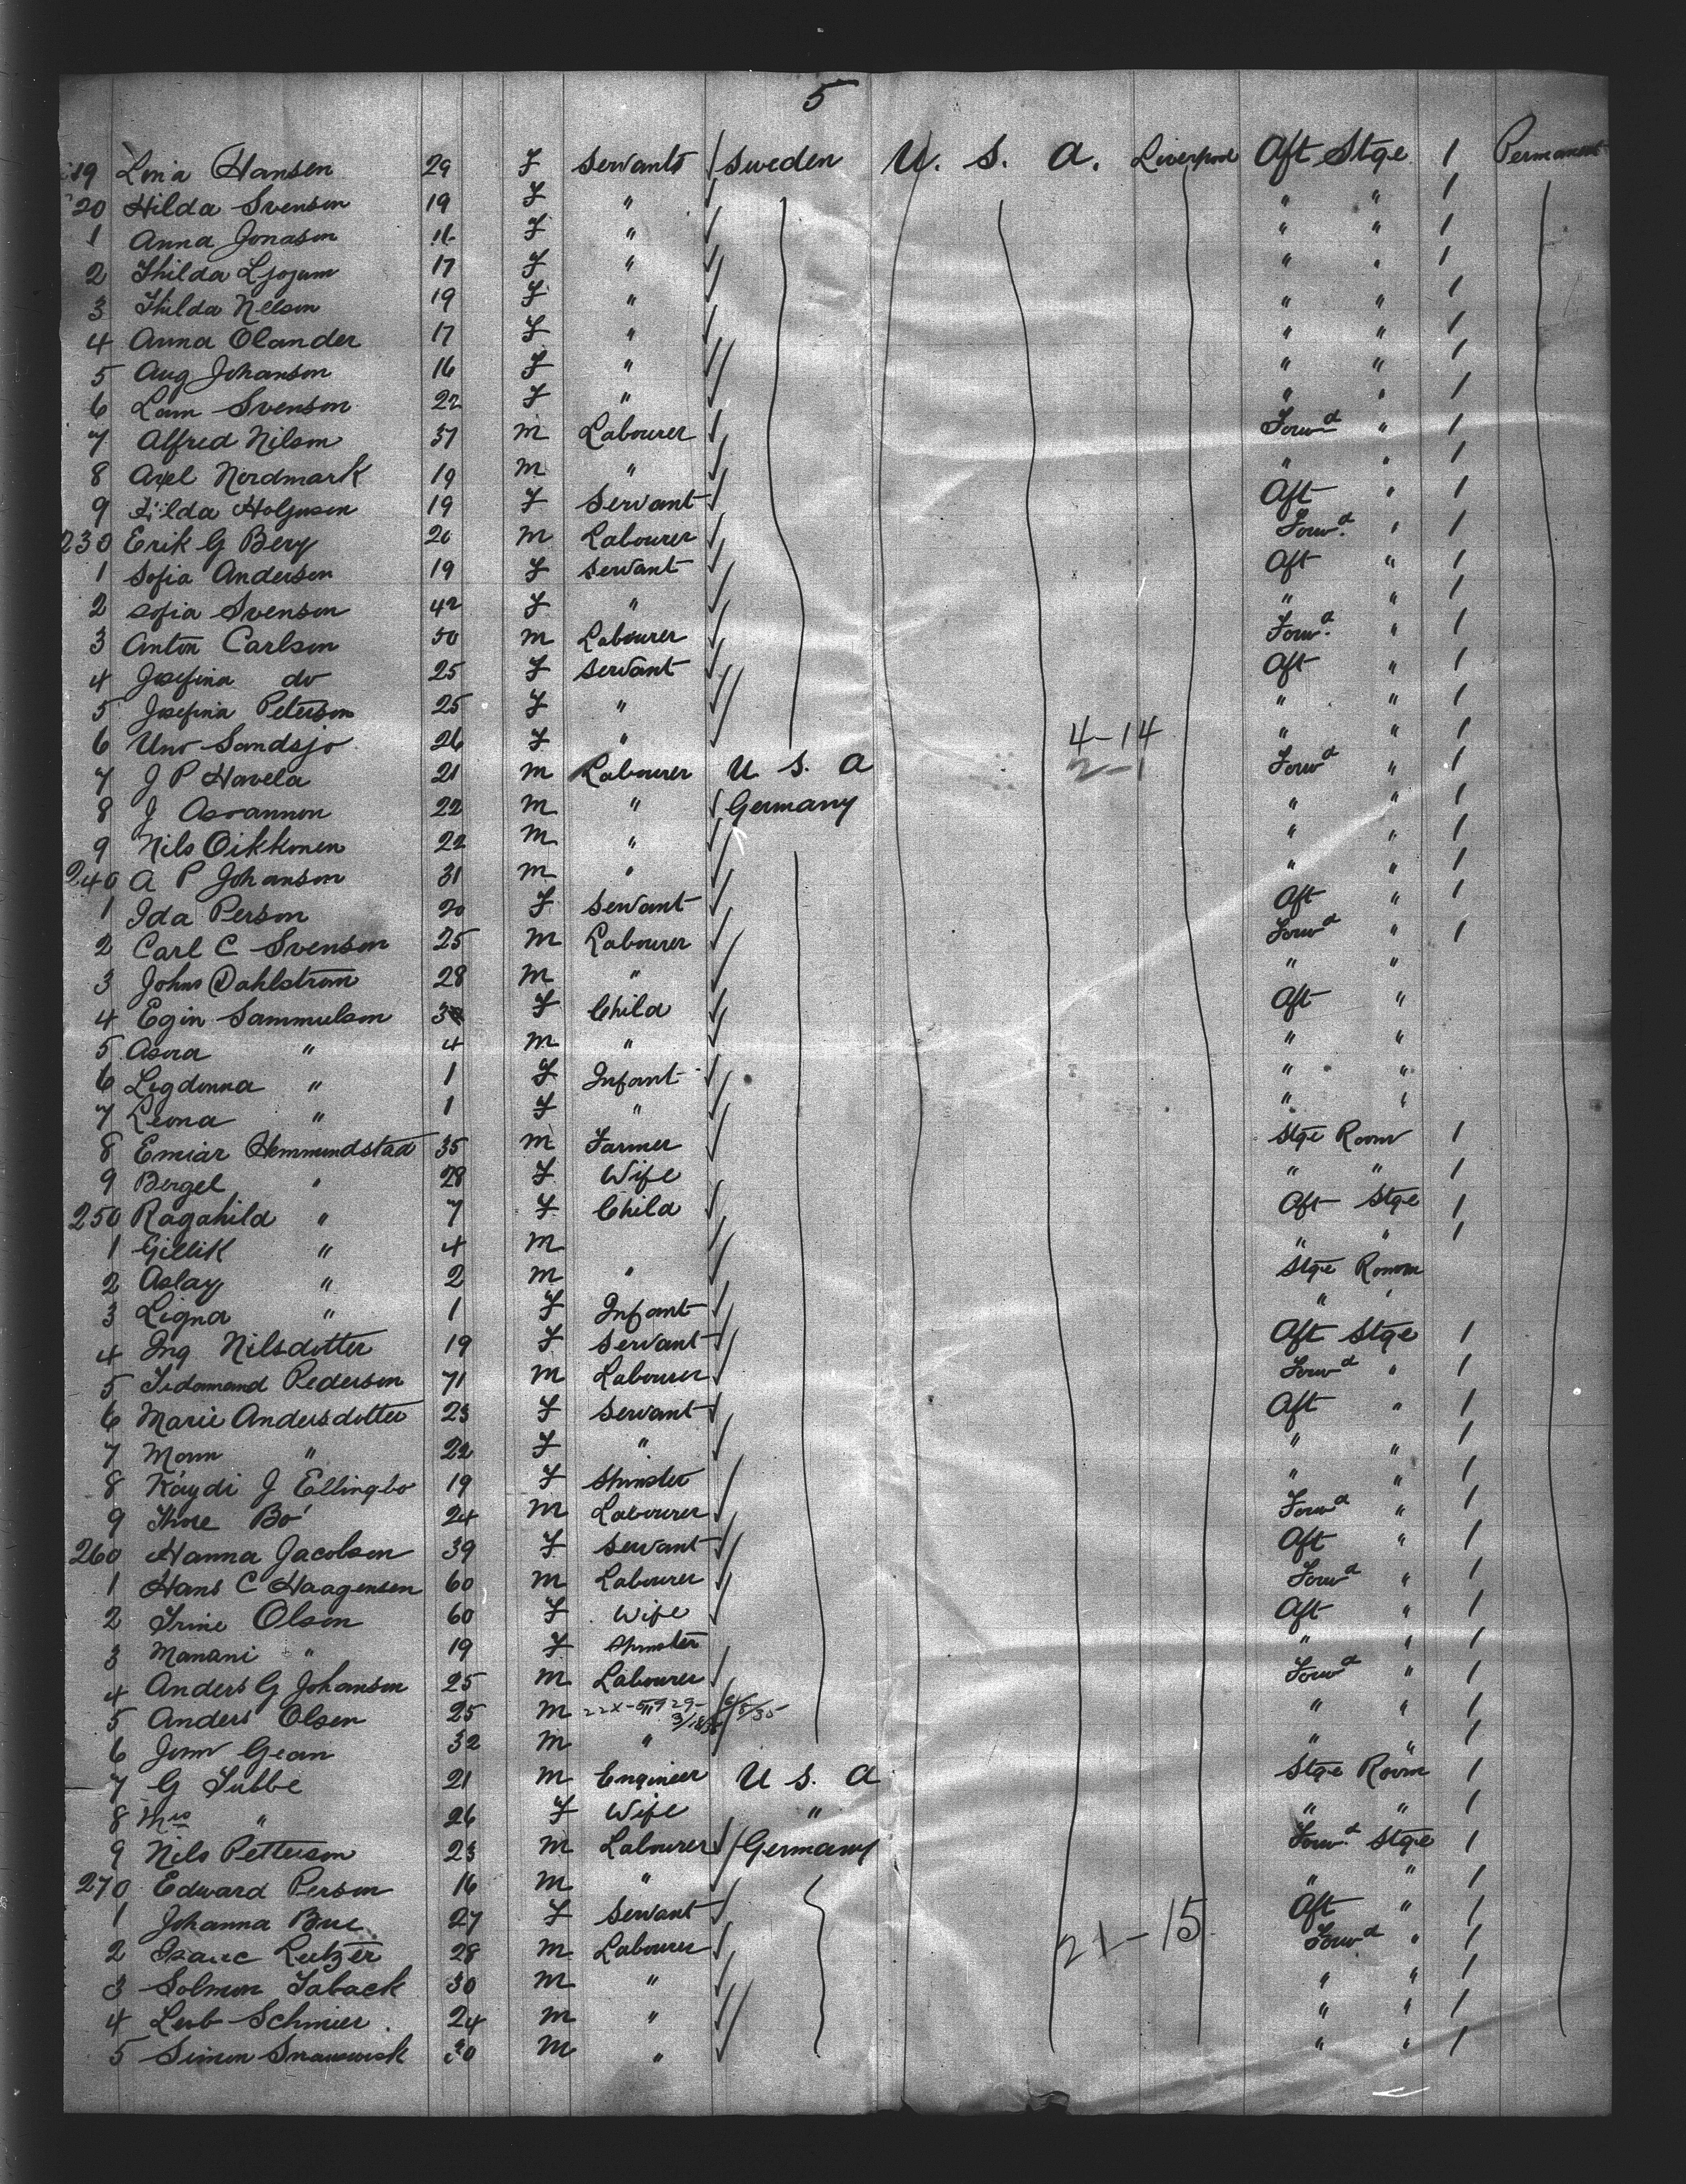 5
19 Lina Hansen 29 F Servants Sweden U. S. A. Liverpool Aft Stge 1 Permanent
20 Hilda Svenson 19 F " " " 1
1 Anna Jonason F " " " 1
2 Thilda 17 F " " " 1
3 Thilda Nelson 19 F " " " 1
4 Anna Olander 17 F " " " 1
5 Aug Johanson 16 F " " " 1
6 Svenson 22 F " " " 1
7 Alfred Nilson 37 M Labourer Forwd " 1
8 Axel Nordmark 19 M " " " 1
9 19 F Servant Aft " 1
230 Erik G Berg M Labourer Forwd " 1
1 Sofia Anderson 19 F Servant Aft " 1
2 Sofia Svenson 42 F " " " 1
3 Anton Carlson M Labourer Forwd " 1
4 Josefina do 25 F Servant Aft " 1
5 Josefina Peterson 25 F " " " 1
6 Uno Sandsjo 26 F " 4-14 " " 1
7 J P Havela 21 M Labourer U S. A 2-1 Forwd " 1
8 J 22 M " Germany " " 1
9 Nils Oikkonen 22 M " " " 1
240 A P Johanson 31 M " " " 1
1 Ida Person 20 F Servant Aft " 1
2 Carl C Svenson 25 M Labourer Forwd " 1
3 Johns Dahlstrom 28 M " " "
4 Egin Sammulson F Child Aft "
5 Asora " 4 M " " "
6 Legdonna " 1 F Infant " "
7 Leona " 1 F " " "
8 Emiar Hemmundstad 35 M Farmer Stge Room 1
9 Bergel " 28 F Wife " " 1
250 Ragahild " 7 F Child Aft Stge 1
1 Gillik " 4 M " " 1
2 Aslay " 2 M " Stge Room
3 Ligna " 1 F Infant " "
4 Ing Nilsdotter 19 F Servant Aft Stge 1
5 Pederson 71 M Labourer Forwd " 1
6 Marie Andersdotter 23 F Servant Aft " 1
7 " 22 F " " " 1
8 Kaydi J Ellingbo 19 F Spinster " " 1
9 Thore Bo 24 M Labourer Forwd " 1
260 Hanna Jacobson 39 F Servant Aft " 1
1 Hans C Haagensen 60 M Labourer Forwd " 1
2 Trine Olsen 60 F Wife Aft " 1
3 Manani " 19 F Spinster " " 1
4 Anders G Johanson 25 M Labourer Forwd " 1
5 Anders Olsen 25 M " " 1
6 32 M " " " 1
7 G Tubbe 21 M Engineer U S. A Stge Room 1
8 Mrs " 26 F Wife " " " 1
9 Nils Petterson 23 M Labourer Germany Forwd Stge 1
270 Edward Person 16 M " " " 1
1 Johanna 27 F Servant Aft " 1
2 Isaac Lutzer 28 M Labourer 21-15 Forwd " 1
3 Solmon Taback 30 M " " " 1
4 Leib Schmier 24 M " " " 1
5 Simon M " " " 1